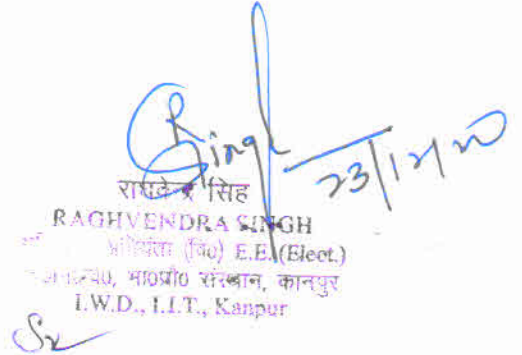 RSingh
23/12/20
राघवेन्द्र सिंह
RAGHVENDRA SINGH
अभियंता (वि०) E.E.(Elect.)
भा०प्रौ० संस्थान, कानपुर
I.W.D., I.I.T., Kanpur